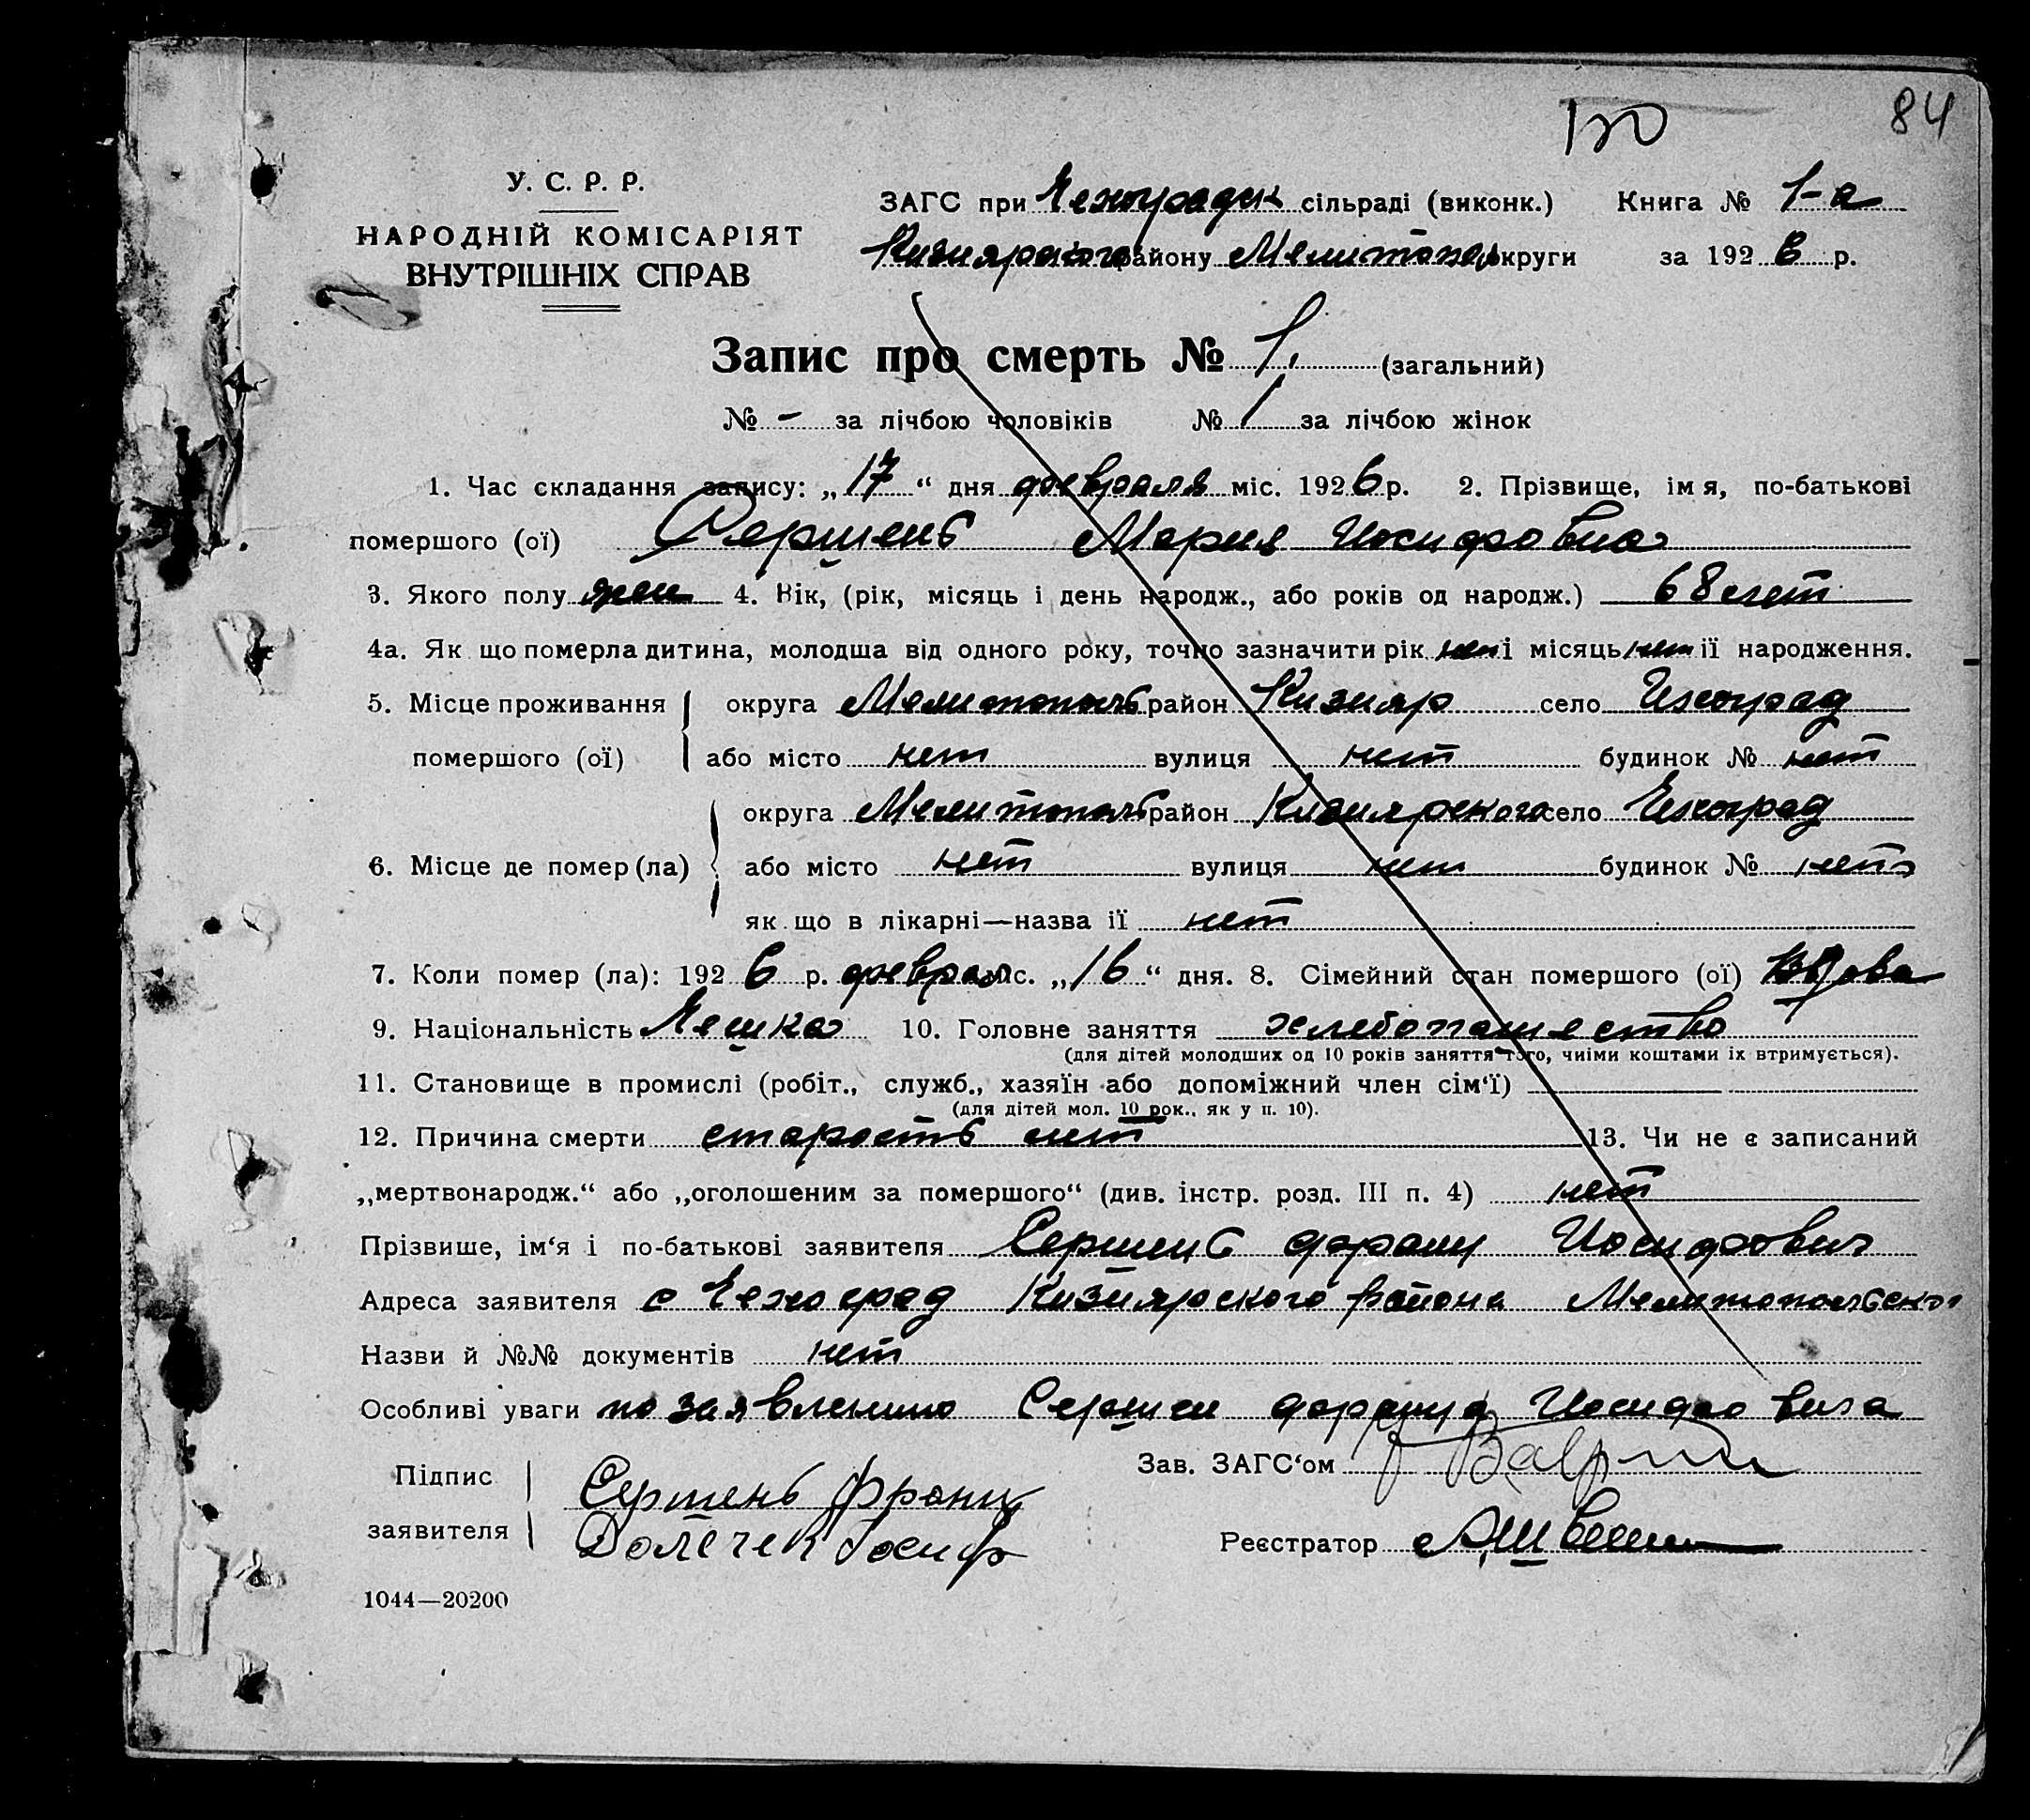 84
У. С. Р. Р.
НАРОДНІЙ КОМІСАРІЯТ
ВНУТРІШНІХ СПРАВ
ЗАГС при Чехоградск сільраді (виконк.) Книга № 1-а
Кизиярского району Мелитополь округи за 1926 р.
Запис про смерть № 1. (загальний)
№ - за лічбою чоловіків № 1 за лічбою жінок
1. Час складання запису: „17“ дня февраля міс. 1926 р. 2. Прізвище, імя, по-батькові
помершого (ої) Мария Иосифовна
3. Якого полу жен 4. Вік, (рік, місяць і день народж., або років од народж.) 68 лет
4а. Як що померла дитина, молодша від одного року, точно зазначити рік нет і місяць нет її народження.
5. Місце проживання округа Мелитополь район Кизияр село Чехоград
помершого (ої) або місто нет вулиця нет будинок № нет
округа Мелитополь район Кизиярского село Чехоград
6. Місце де помер (ла) або місто нет вулиця нет будинок № нет
як що в лікарні—назва її нет
7. Коли помер (ла): 1926 р. феврал міс. „16“ дня. 8. Сімейний стан помершого (ої) вдова
9. Національність Чешка 10. Головне заняття хлебопашество
(для дітей молодших од 10 років заняття того, чиїми коштами їх втримується).
11. Становище в промислі (робіт., служб., хазяїн або допоміжний член сім‘ї)
(для дітей мол. 10 рок., як у п. 10).
12. Причина смерти старость лет 13. Чи не є записаний
„мертвонародж.“ або „оголошеним за помершого“ (див. інстр. розд. III п. 4) нет
Прізвише, ім‘я і по-батькові заявителя Сершень Франц Иосифович
Адреса заявителя с Чехоград Кизиярского района Мелитопольской
Назви й №№ документів нет
Особливі уваги по заявлению Сершен Франца Иосифовича
Підпис Сершень Франц Зав. ЗАГС‘ом
заявителя Долечек Іосиф Реєстратор
1044—20200